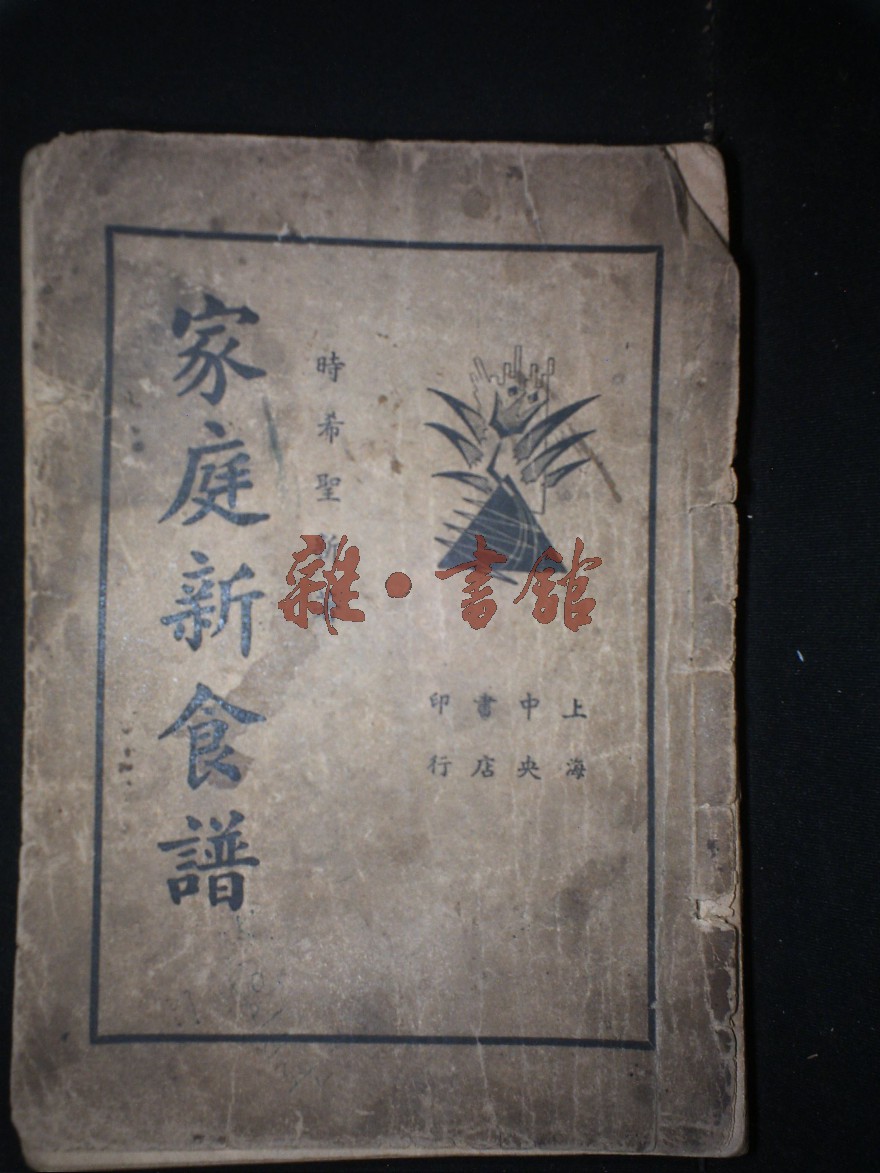 上海
中央
書店
印行
時希聖新
家庭新食譜
雜·書館